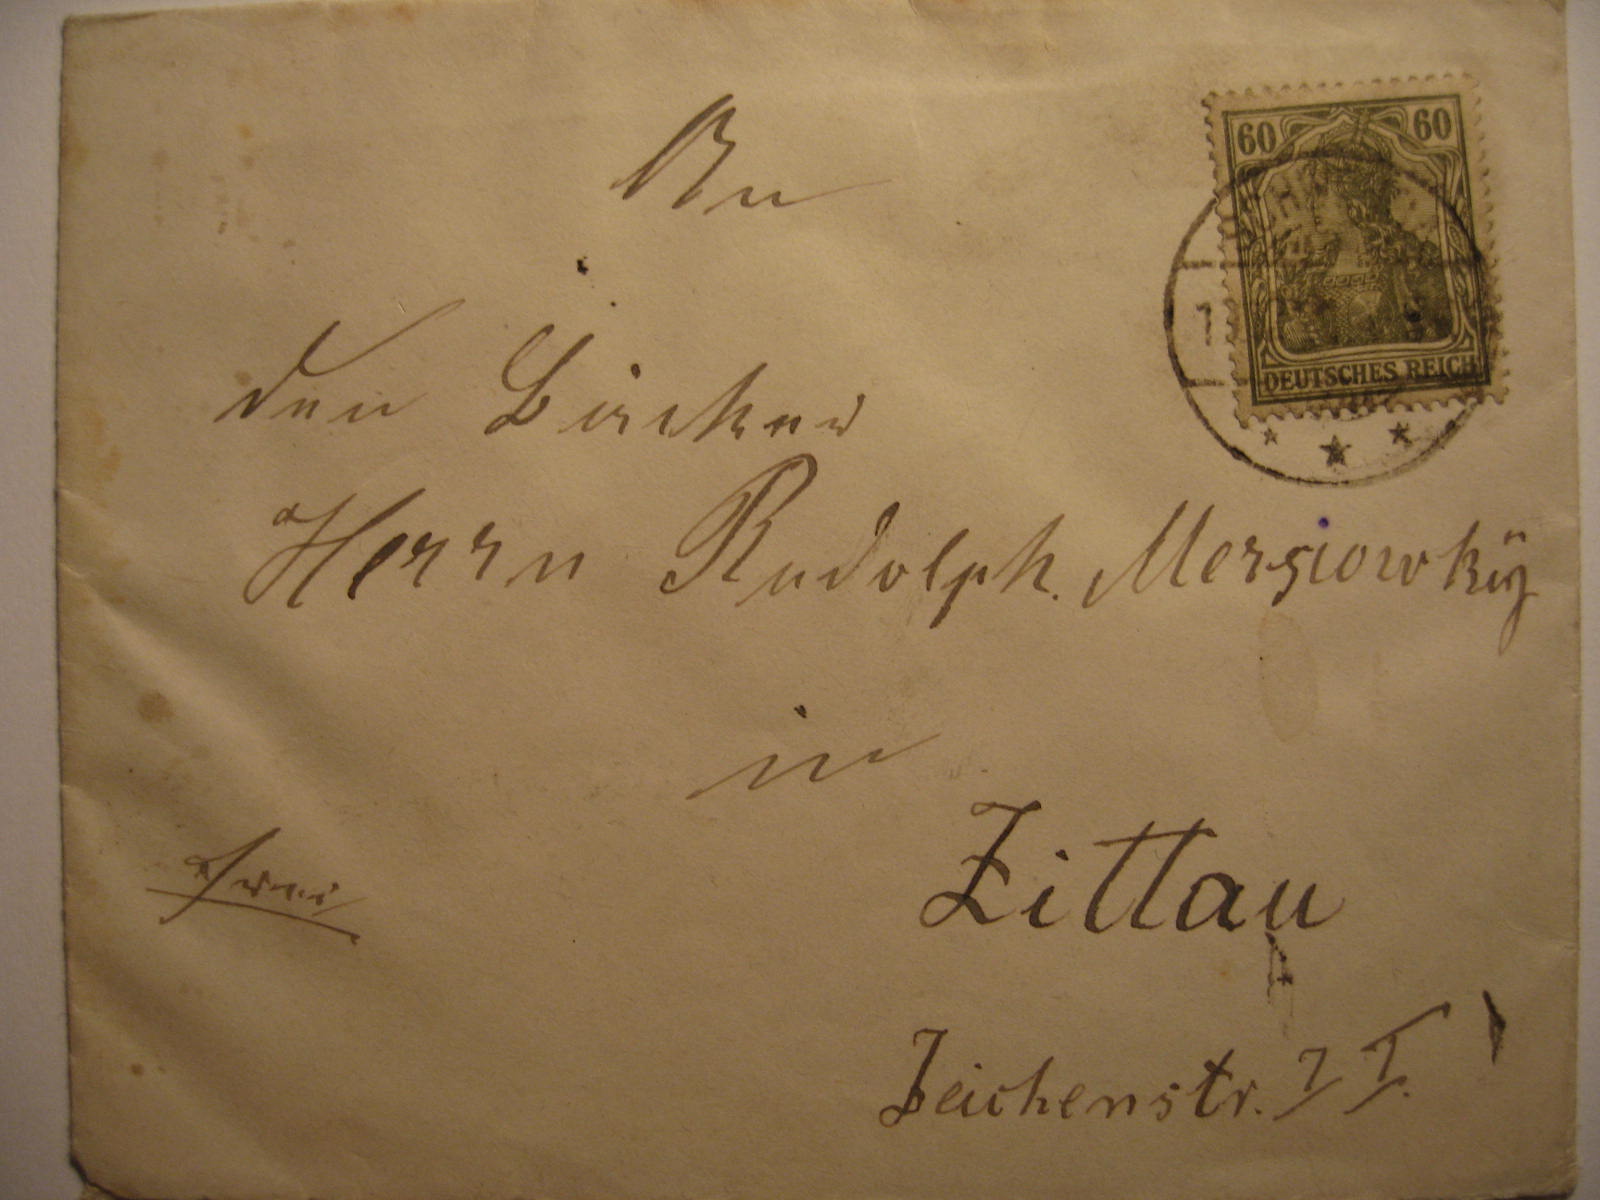 An
60 60
DEUTSCHES REICH
den Bäcker
Herrn Rudolph. Mersiowkÿ
in
Zittau
frei
Zeichenstr. 7 I.